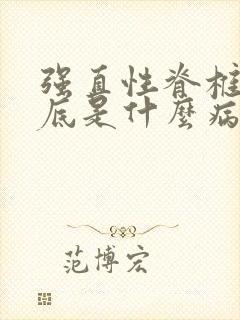 强直性脊椎
底是什麼病
范博宏